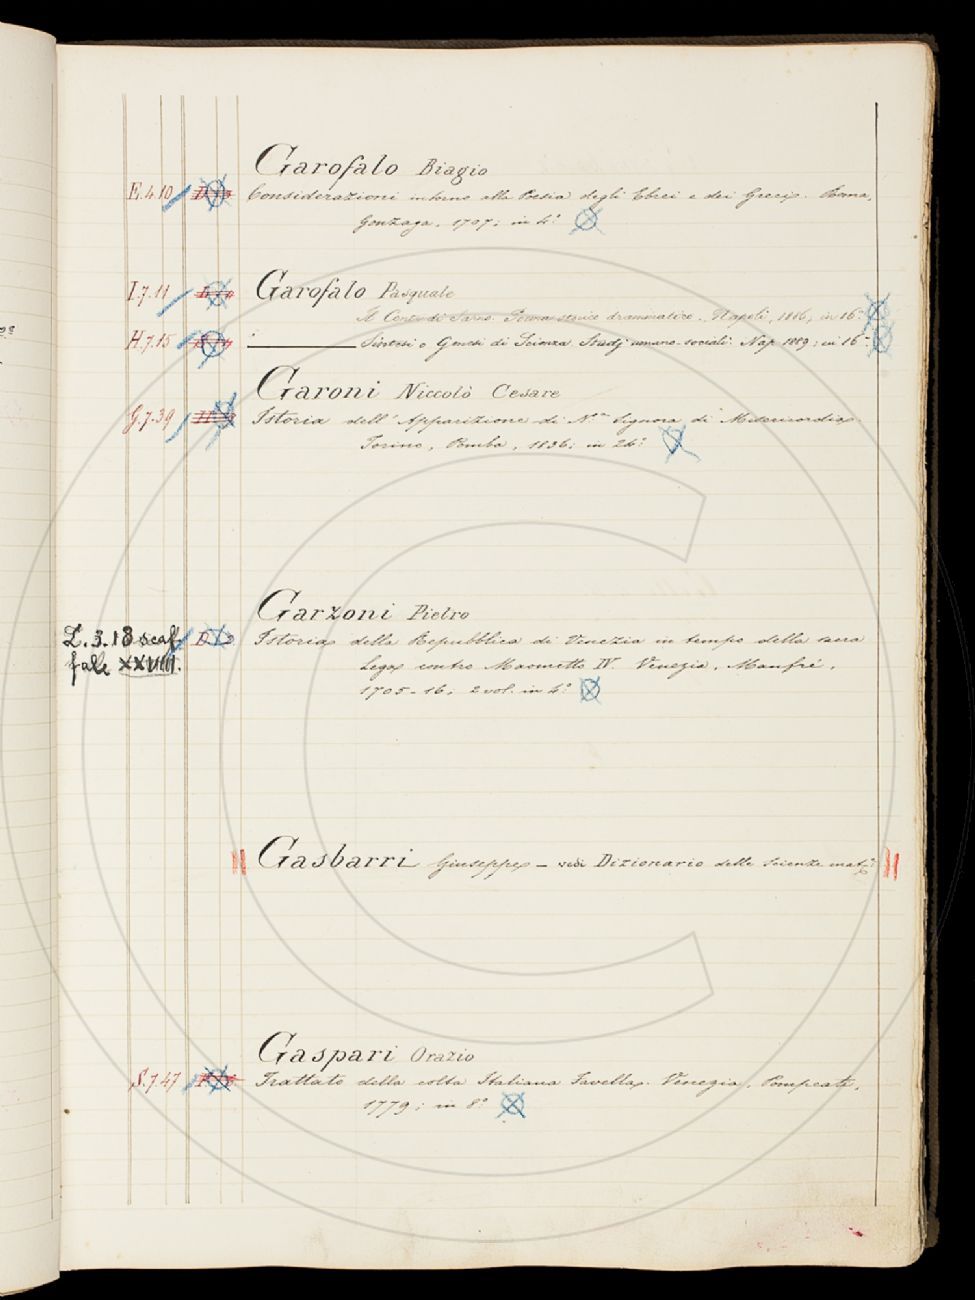 Garofalo Biagio
E.4.10 Considerazioni intorno alla Poesia degli Ebrei e dei Greci. Roma,
Gonzaga, 1707; in 4º
I.7.11 Garofalo Pasquale
Il Conte di Sarno. storico drammatico. Napoli, 1886, in 16º
H.7.15 Sintesi o Genesi di Scienza. Studj umano-sociali. Nap. 1889; in 16º
Garoni Niccolò Cesare
G.7.39 Istoria dell'Apparizione di Nª Signora di Misericordia.
Torino, Pomba, 1836; in 24º
Garzoni Pietro
L.3.18 scaf Istoria della Repubblica di Venezia in tempo della sacra
fale XXVIIII. Lega contro Maometto IV. Venezia, Manfré,
1705-16; 2 vol. in 4º
Gasbarri Giuseppe – vedi Dizionario delle scienze mat.
Gaspari Orazio
S.7.47 Trattato della colta Italiana Favella. Venezia,
1779; in 8º